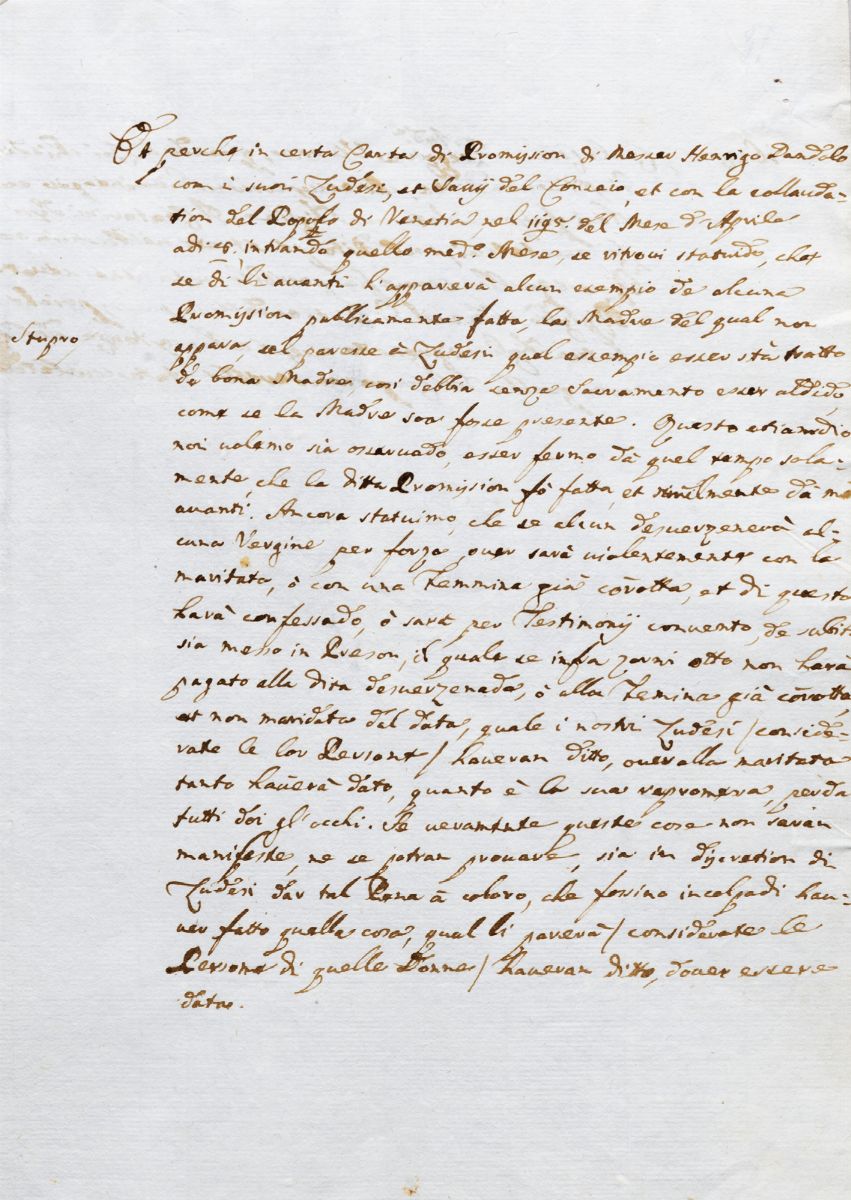 Et perche in certa Carta di Promission di Messer Henrigo Dandolo
com i suoi Zudesi, et Savij del Conseio, et con la collauda-
tion del Popolo di Venetia nel 1195. del Mese d'Aprile
adi 15. intrando quello med.º Mese, se ritrovi statuido, che
se di lì avanti l'apparerà alcun esempio de alcuna
Promission publicamente fatta, la Madre del qual non
Stupro
appara, sel paresse à Zudesi quel essempio esser stà tratto
da bona Madre, così debbia senza Sacramento esser aldido,
come se la Madre soa fosse presente. Questo etiamdio
noi volemo sia osservado, esser fermo dà quel tempo sola-
mente, che la ditta Promission fò fatta, et similmente dà mò
avanti. Ancora statuimo, che se alcun desverzenerà al-
cuna Vergine per forza, over sarà violentemente con la
maritata, ò con una Femmina già corotta, et di questo
harà confessado, ò sarà per Testimonij convento, de subit
sia messo in Preson, il quale se infra zorni otto non harà
pagato alla dita desverzenada, ò alla Femina già corotta,
et non maridata dal dàta, quale i nostri Zudesi / conside-
rate le lor Persone / haveran ditto, over alla maritata
tanto haverà dato, quanto è la sua repromessa, perda
tutti doi gl'occhi. Se veramente queste cose non saràn
manifeste, ne se potran provare, sia in discretion di
Zudesi dar tal Pena à coloro, che fossino incolpadi hav-
ver fatto quella cosa, qual li parerà / considerate le
Persone di quelle Donne / haveran ditto, dover essere
data.